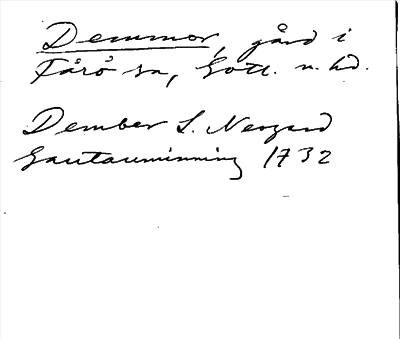 Demmor, gård i
Fårö sn, Gotl. n. hd.
Dember S. Neogard
Gautauminning 1732